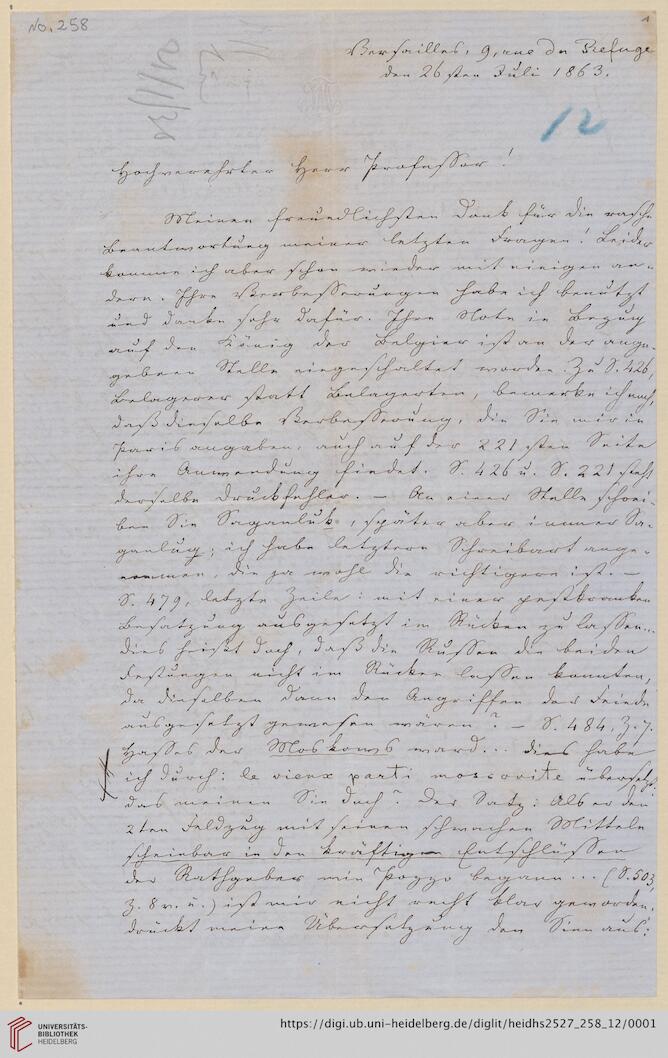 No. 258
1
Versailles, 9, rue du Refuge
den 26sten Juli 1863.
12
Hochverehrter Herr Professor!
Meinen freundlichsten Dank für die rasche
Beantwortung meiner letzten Fragen! Leider
komme ich aber schon wieder mit einigen an-
dern. Ihre Verbesserungen habe ich benützt
und danke sehr dafür. Ihre Note in Bezug
auf den König der Belgier ist an der ange-
gebenen Stelle eingeschaltet worden. Zu S. 426,
Belagerer statt Belagerten, bemerke ich noch,
daß dieselbe Verbesserung, die Sie mir in
Paris angaben, auch auf der 221sten Seite
ihre Anwendung findet. S. 426 u. S. 221 steht
derselbe Druckfehler. — An einer Stelle schrei-
ben Sie Saganluk, später aber immer Sa-
ganlug; ich habe letztere Schreibart ange-
nommen, die ja wohl die richtigere ist. —
S. 479, letzte Zeile: mit einer pestkranken
Besatzung ausgesetzt im Rücken zu lassen...
dies heißt doch, daß die Russen die beiden
Festungen nicht im Rücken lassen konnten,
da dieselben dann den Angriffen der Feinde
ausgesetzt gewesen wären? — S. 484, Z. 7.
Hasses der Moskows ward... dies habe
ich durch: le vieux parti moscovite übersetzt,
das meinen Sie doch? Der Satz: Als er den
2ten Feldzug mit seinen schwachen Mitteln
scheinbar in den kräftigen Entschlüssen
der Rathgeber wie Pozzo begann... (S. 503,
Z. 8 v. u.) ist mir nicht recht klar geworden.
Drückt meine Übersetzung den Sinn aus:
UNIVERSITÄTS-
BIBLIOTHEK
HEIDELBERG
https://digi.ub.uni-heidelberg.de/diglit/heidhs2527_258_12/0001